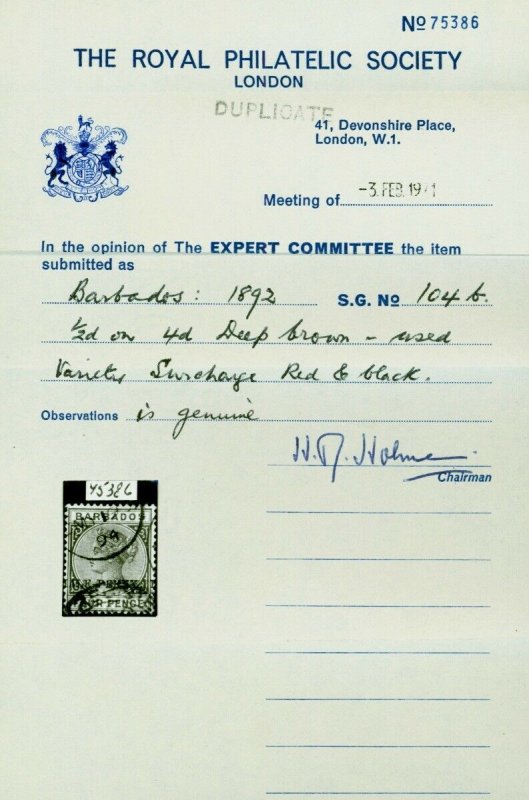 No 75386
THE ROYAL PHILATELIC SOCIETY
LONDON
DUPLICATE
41, Devonshire Place,
London, W.1.
Meeting of -3. FEB. 19 1
In the opinion of The EXPERT COMMITTEE the item
submitted as
Barbados: 1892 S.G. No 104 b.
½d on 4d Deep brown - used
Variety Surcharge Red & black.
Observations is genuine
Chairman
75386
BARBADOS